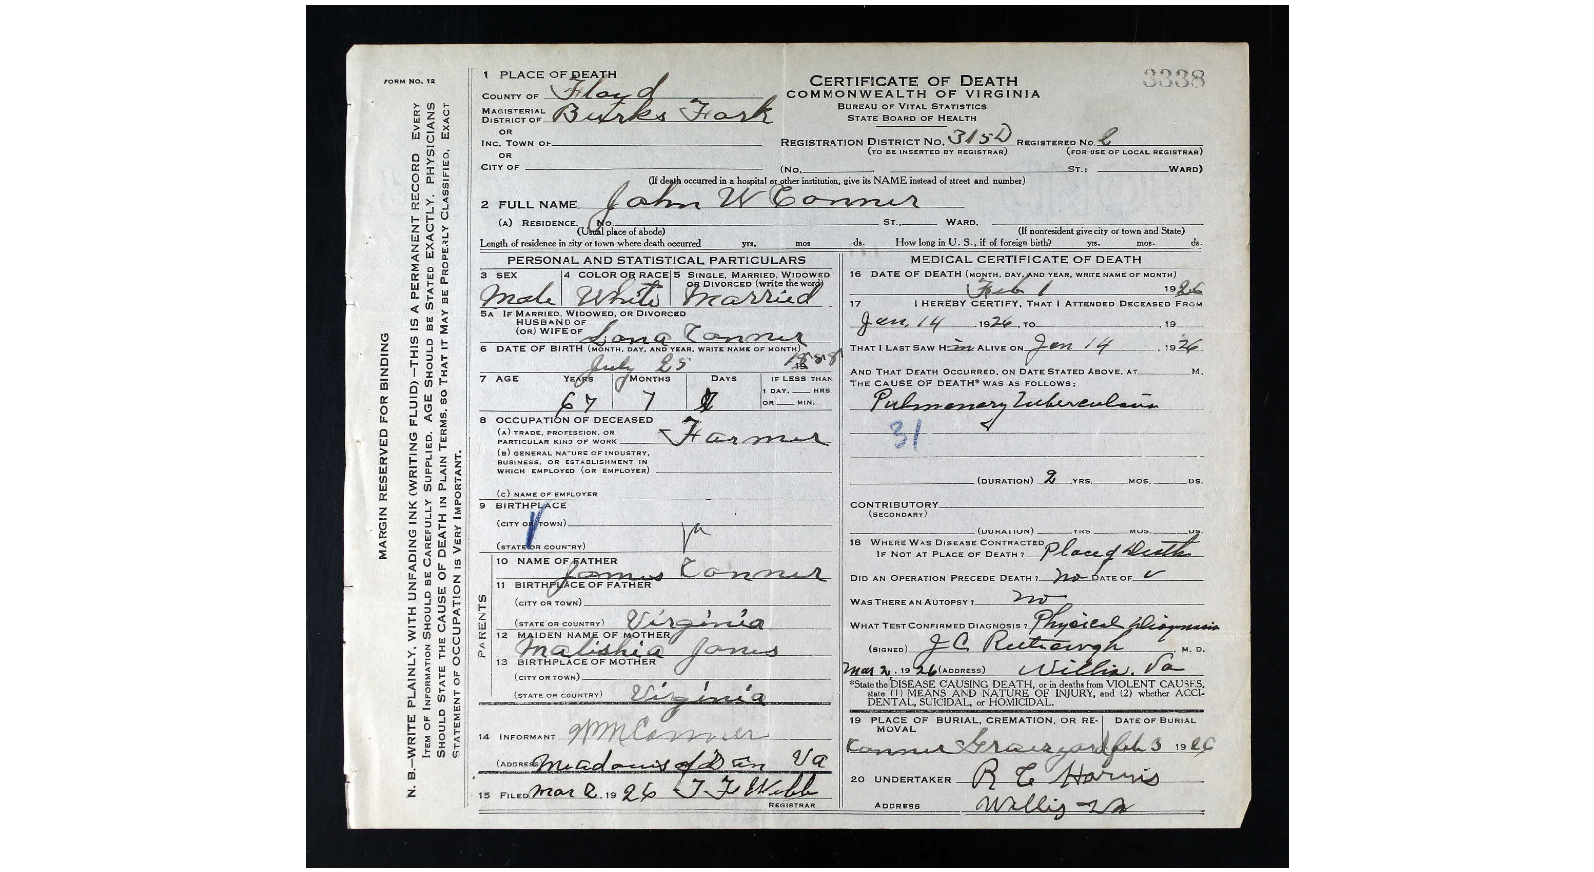 FORM NO. 12
MARGIN RESERVED FOR BINDING
N. B.—WRITE PLAINLY, WITH UNFADING INK (WRITING FLUID)—THIS IS A PERMANENT RECORD EVERY
ITEM OF INFORMATION SHOULD BE CAREFULLY SUPPLIED. AGE SHOULD BE STATED EXACTLY. PHYSICIANS
SHOULD STATE THE CAUSE OF DEATH IN PLAIN TERMS, SO THAT IT MAY BE PROPERLY CLASSIFIED. EXACT
STATEMENT OF OCCUPATION IS VERY IMPORTANT.
3338
CERTIFICATE OF DEATH
COMMONWEALTH OF VIRGINIA
BUREAU OF VITAL STATISTICS
STATE BOARD OF HEALTH
1 PLACE OF DEATH
COUNTY OF Floyd
MAGISTERIAL DISTRICT OF Burks Fork
OR
INC. TOWN OF
OR
CITY OF
REGISTRATION DISTRICT NO. 315D REGISTERED NO.
(TO BE INSERTED BY REGISTRAR) (FOR USE OF LOCAL REGISTRAR)
(NO. ST.: WARD)
(If death occurred in a hospital or other institution, give its NAME instead of street and number)
2 FULL NAME John W Conner
(A) RESIDENCE. No. ST. WARD.
(Usual place of abode) (If nonresident give city or town and State)
Length of residence in city or town where death occurred yrs. mos ds. How long in U. S., if of foreign birth? yrs. mos. ds.
PERSONAL AND STATISTICAL PARTICULARS
3 SEX 4 COLOR OR RACE 5 SINGLE, MARRIED, WIDOWED
OR DIVORCED (write the word)
Male White Married
5A IF MARRIED, WIDOWED, OR DIVORCED
HUSBAND OF
(OR) WIFE OF Conner
6 DATE OF BIRTH (MONTH, DAY, AND YEAR, WRITE NAME OF MONTH)
July 25
7 AGE YEARS MONTHS DAYS IF LESS THAN
1 DAY, HRS
OR MIN.
67 7
8 OCCUPATION OF DECEASED
(A) TRADE, PROFESSION, OR
PARTICULAR KIND OF WORK Farmer
(B) GENERAL NATURE OF INDUSTRY,
BUSINESS, OR ESTABLISHMENT IN
WHICH EMPLOYED (OR EMPLOYER)
(C) NAME OF EMPLOYER
9 BIRTHPLACE
(CITY OR TOWN)
(STATE OR COUNTRY) Va
PARENTS
10 NAME OF FATHER
James Conner
11 BIRTHPLACE OF FATHER
(CITY OR TOWN)
(STATE OR COUNTRY) Virginia
12 MAIDEN NAME OF MOTHER
Malishia Jones
13 BIRTHPLACE OF MOTHER
(CITY OR TOWN)
(STATE OR COUNTRY) Virginia
14 INFORMANT Conner
(ADDRESS) Meadows of Dan Va
15 FILED Mar 2, 1926 T F Webb
REGISTRAR
MEDICAL CERTIFICATE OF DEATH
16 DATE OF DEATH (MONTH, DAY, AND YEAR, WRITE NAME OF MONTH)
Feb 1 1926
17 I HEREBY CERTIFY, THAT I ATTENDED DECEASED FROM
Jan. 14 1926, TO 19
THAT I LAST SAW HIM ALIVE ON Jan 14, 1926
AND THAT DEATH OCCURRED, ON DATE STATED ABOVE, AT M.
THE CAUSE OF DEATH* WAS AS FOLLOWS:
Pulmonary Tuberculosis
31
(DURATION) 2 YRS. MOS. DS.
CONTRIBUTORY
(SECONDARY)
(DURATION) YRS MOS. DS.
18 WHERE WAS DISEASE CONTRACTED
IF NOT AT PLACE OF DEATH? Place of Death
DID AN OPERATION PRECEDE DEATH? no DATE OF
WAS THERE AN AUTOPSY? no
WHAT TEST CONFIRMED DIAGNOSIS? Physical Diagnosis
(SIGNED) J.C. M. D.
Mar 2, 1926 (ADDRESS) Willis. Va
*State the DISEASE CAUSING DEATH, or in deaths from VIOLENT CAUSES,
state (1) MEANS AND NATURE OF INJURY, and (2) whether ACCI-
DENTAL, SUICIDAL, or HOMICIDAL.
19 PLACE OF BURIAL, CREMATION, OR RE-
MOVAL DATE OF BURIAL
Conner Graveyard Feb 3 1926
20 UNDERTAKER R C Harris
ADDRESS Willis Va